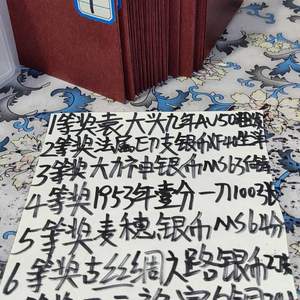 1等奖袁大头九年AU50
2等奖法属印支银币XF40
3等奖大力神银币MS65
4等奖1953年壹分一刀100张
5等奖麦穗银币MS64分
6等奖古丝绸之路银币2